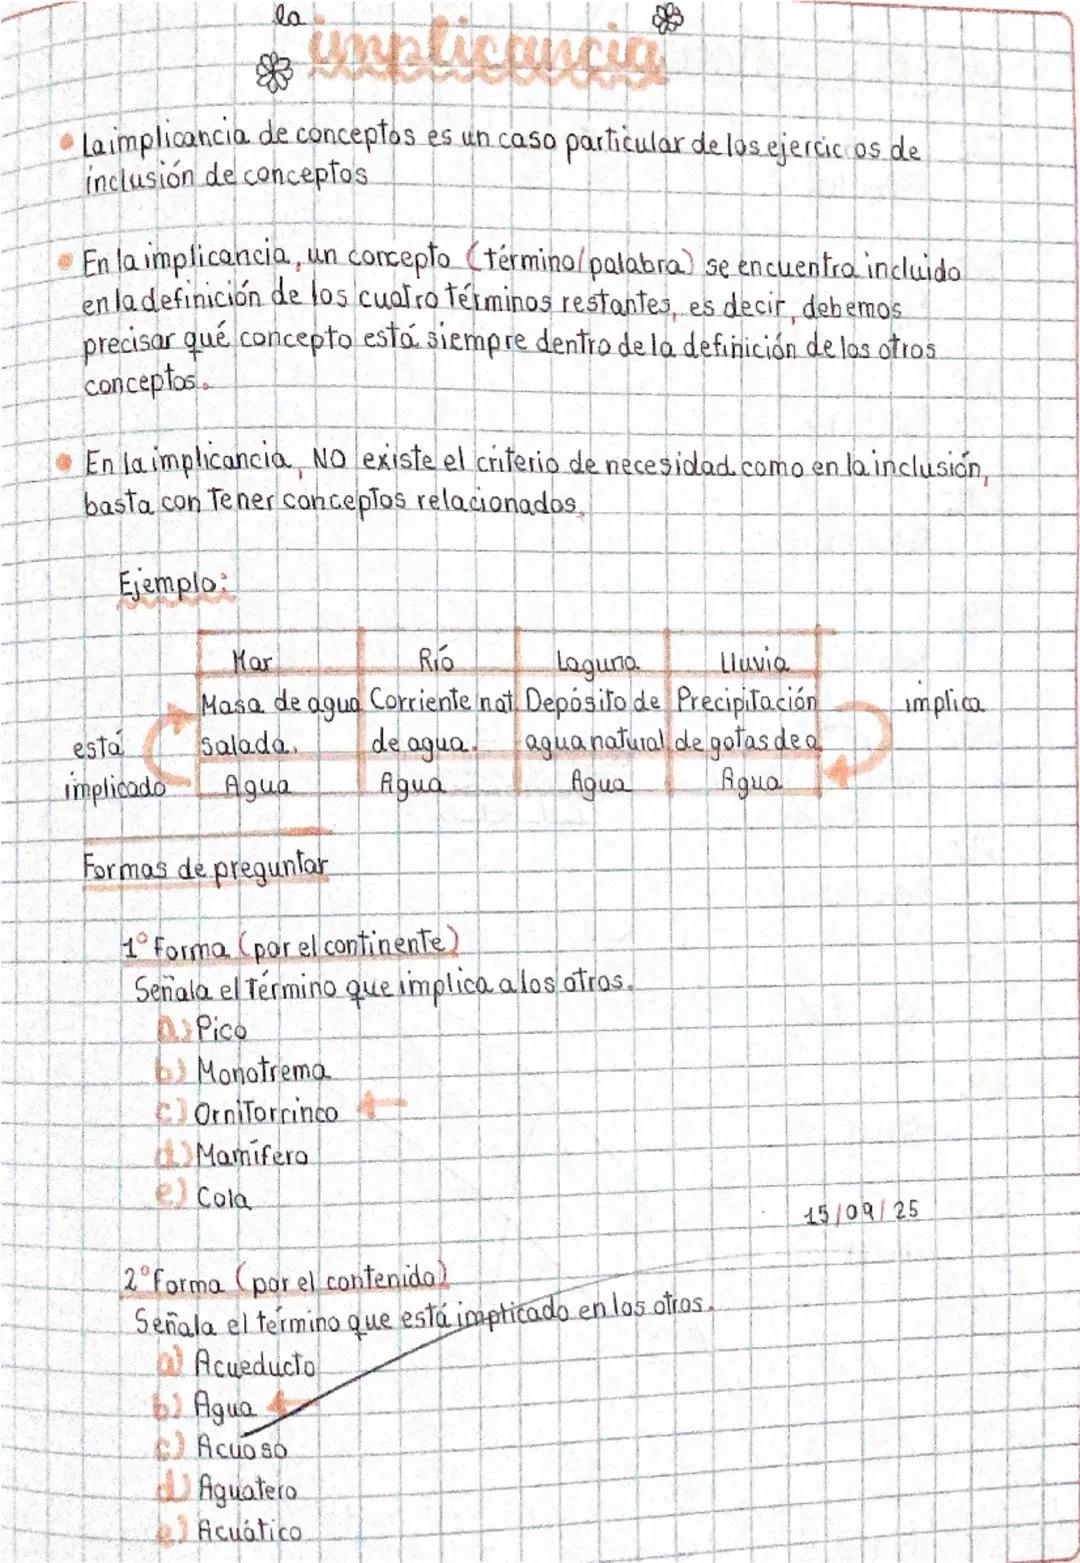 la
implicancia
• La implicancia de conceptos es un caso particular de los ejercicios de
inclusión de conceptos
• En la implicancia, un concepto (término/palabra) se encuentra incluido
en la definición de los cuatro términos restantes, es decir, debemos
precisar qué concepto está siempre dentro de la definición de los otros
conceptos.
• En la implicancia, NO existe el criterio de necesidad como en la inclusión,
basta con tener conceptos relacionados.
Ejemplo:
Mar Río Laguna Lluvia
Masa de agua Corriente nat Depósito de Precipitación implica
está salada. de agua. agua natural de gotas de a
implicado Agua Agua Agua Agua
Formas de preguntar
1° forma (por el continente)
Señala el término que implica a los otros.
a) Pico
b) Monotrema
c) Ornitorrinco
d) Mamífero
e) Cola
15/09/25
2° forma (por el contenido)
Señala el término que está implicado en los otros.
a) Acueducto
b) Agua
c) Acuoso
d) Aguatero
e) Acuático